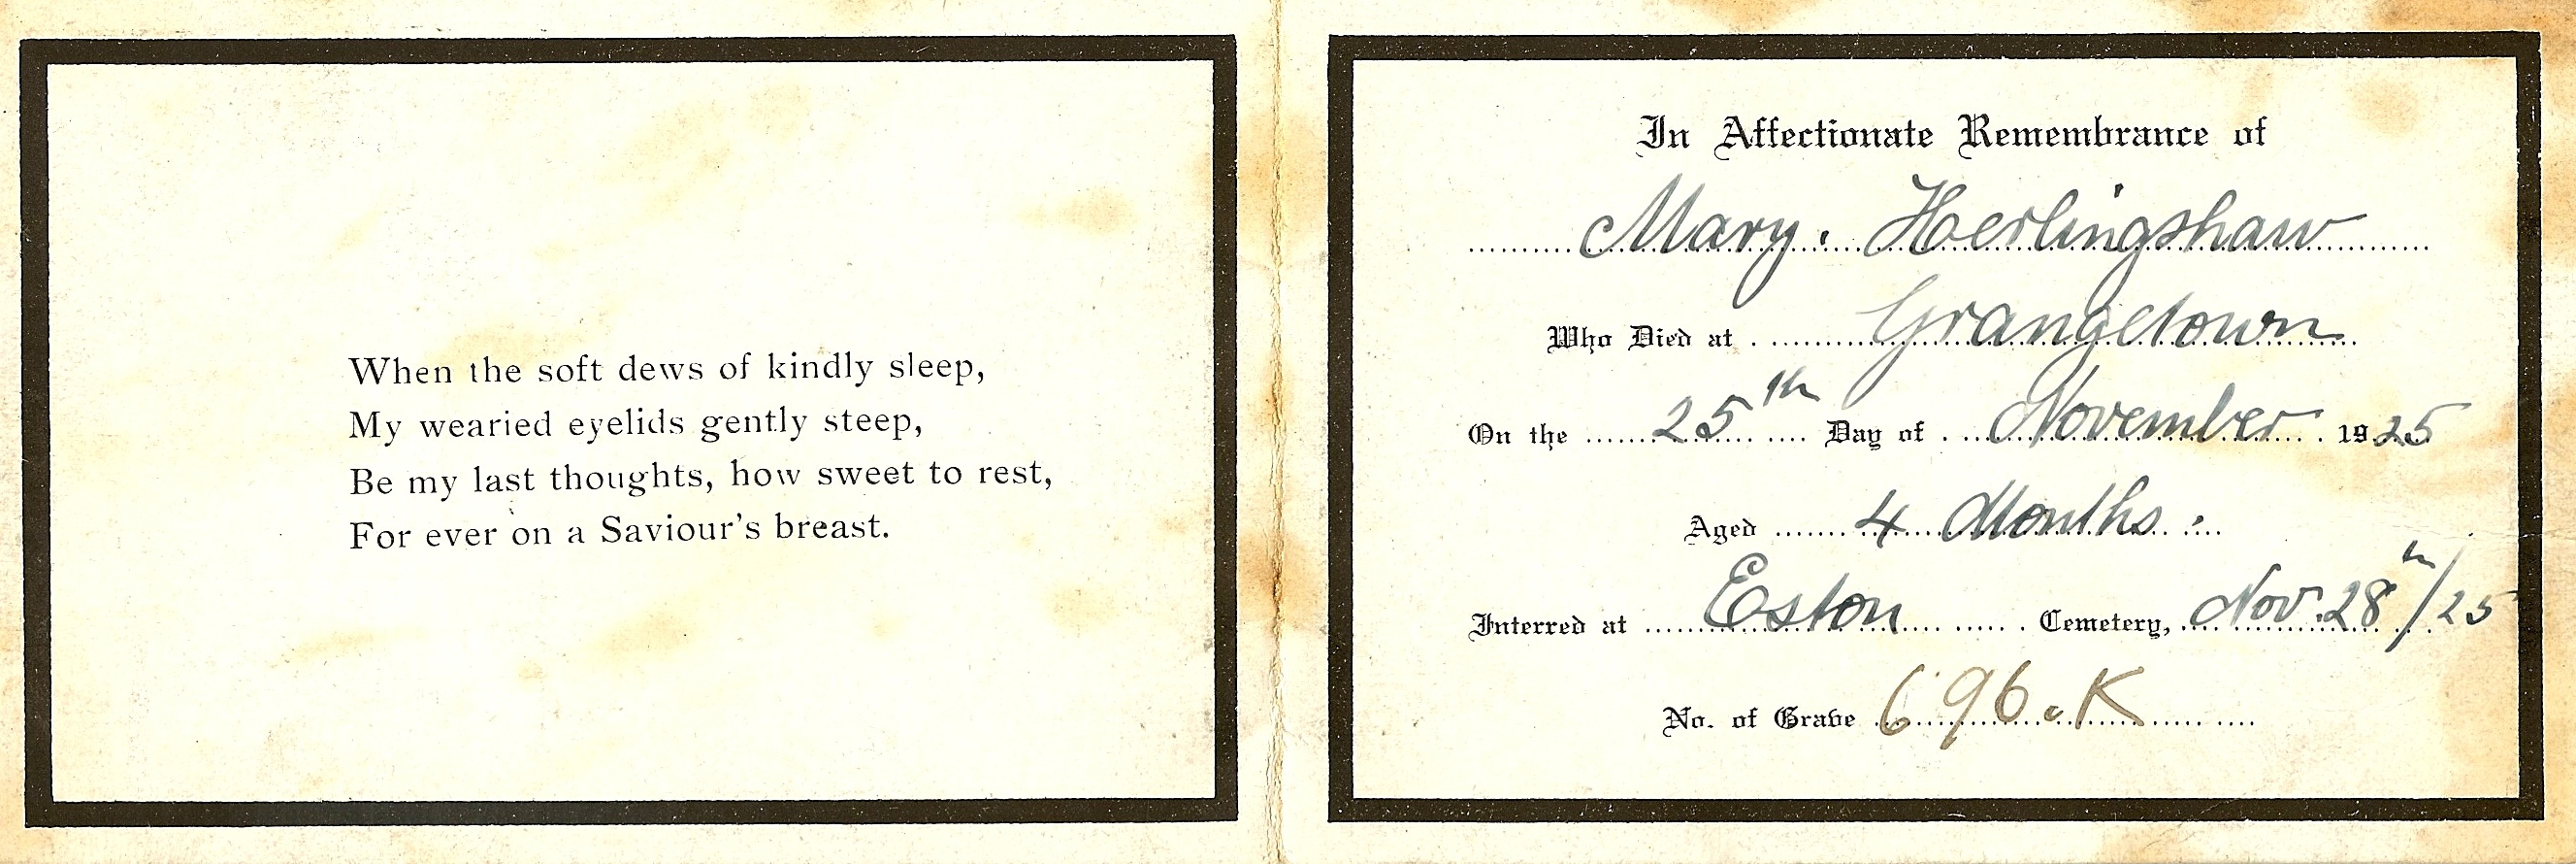 When the soft dews of kindly sleep,
My wearied eyelids gently steep,
Be my last thoughts, how sweet to rest,
For ever on a Saviour's breast.
In Affectionate Remembrance of
Mary. Herlingshaw
Who Died at Grangetown
On the 25th Day of November 1925
Aged 4 Months.
Interred at Eston Cemetery, Nov. 28th/25
No. of Grave 696.K